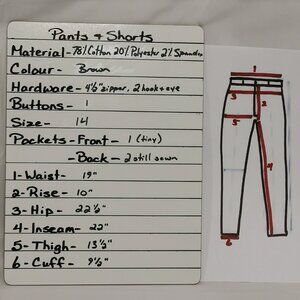 Pants & Shorts
Material - 78% Cotton 20% Polyester 2% Spandex
Colour - Brown
Hardware - 4½" zipper, 2 hook + eye
Buttons - 1
Size - 14
Pockets - Front - 1 (tiny)
- Back - 2 still sewn
1 - Waist - 19"
2 - Rise - 10"
3 - Hip - 22½"
4 - Inseam - 22"
5 - Thigh - 13½"
6 - Cuff - 9½"
1
3
2
5
4
6